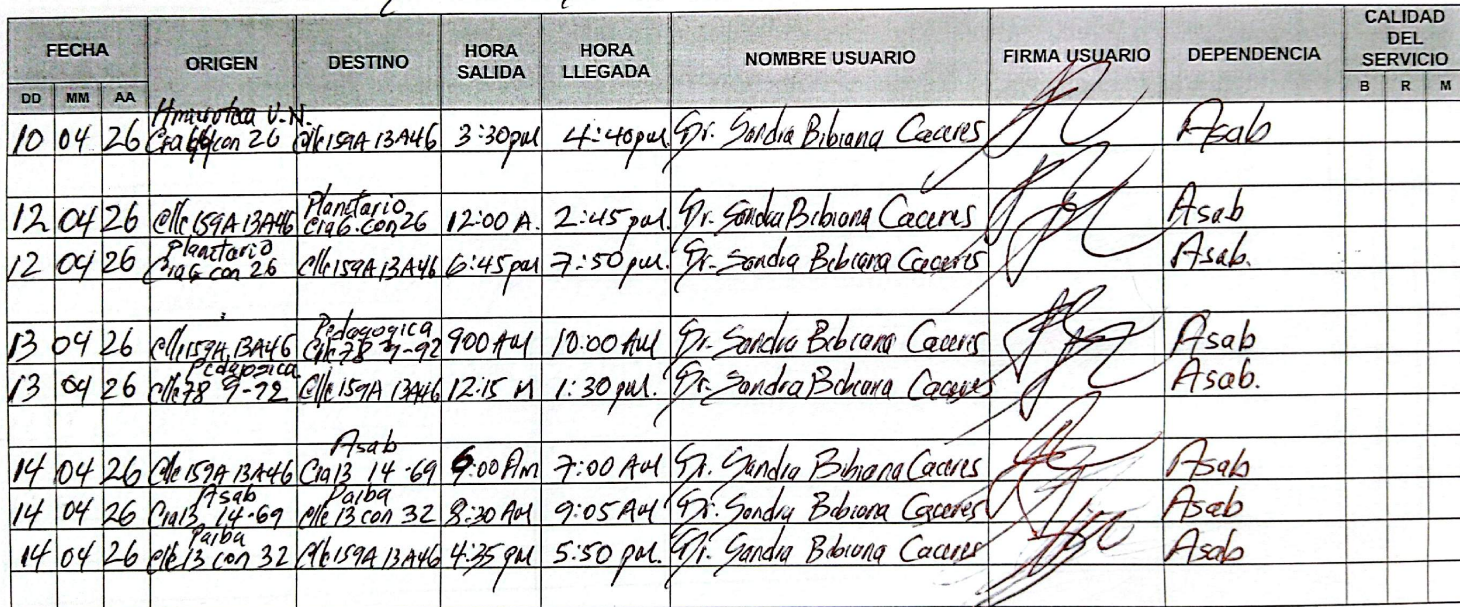 FECHA ORIGEN DESTINO HORA SALIDA HORA LLEGADA NOMBRE USUARIO FIRMA USUARIO DEPENDENCIA CALIDAD DEL SERVICIO
DD MM AA B R M
U.N.
10 04 26 Cra 44 con 26 Clle 159A 13A46 3:30pm 4:40pm. Dr. Sandra Bibiana Caceres Asab
Planetario
12 04 26 Clle 159A 13A46 Cra 6. con 26 12:00 A. 2:45 pm. Dr. Sandra Bibiana Caceres Asab
Planetario
12 04 26 Cra 6 con 26 Clle 159A 13A46 6:45pm 7:50pm. Dr. Sandra Bibiana Caceres Asab.
Pedagogica
13 04 26 Clle 159A 13A46 Clle 78 9-92 900 AM 10:00 AM Dr. Sandra Bibiana Caceres Asab
Pedagogica
13 04 26 Clle 78 9-92 Clle 159A 13A46 12:15 M 1:30 pm. Dr. Sandra Bibiana Caceres Asab.
Asab
14 04 26 Clle 159A 13A46 Cra 13 14-69 6:00 Am 7:00 AM Dr. Sandra Bibiana Caceres Asab
Asab Paiba
14 04 26 Cra 13 14-69 Clle 13 con 32 8:30 AM 9:05 AM Dr. Sandra Bibiana Caceres Asab
Paiba
14 04 26 Clle 13 con 32 Clle 159A 13A46 4:35 pm 5:50 pm. Dr. Sandra Bibiana Caceres Asab